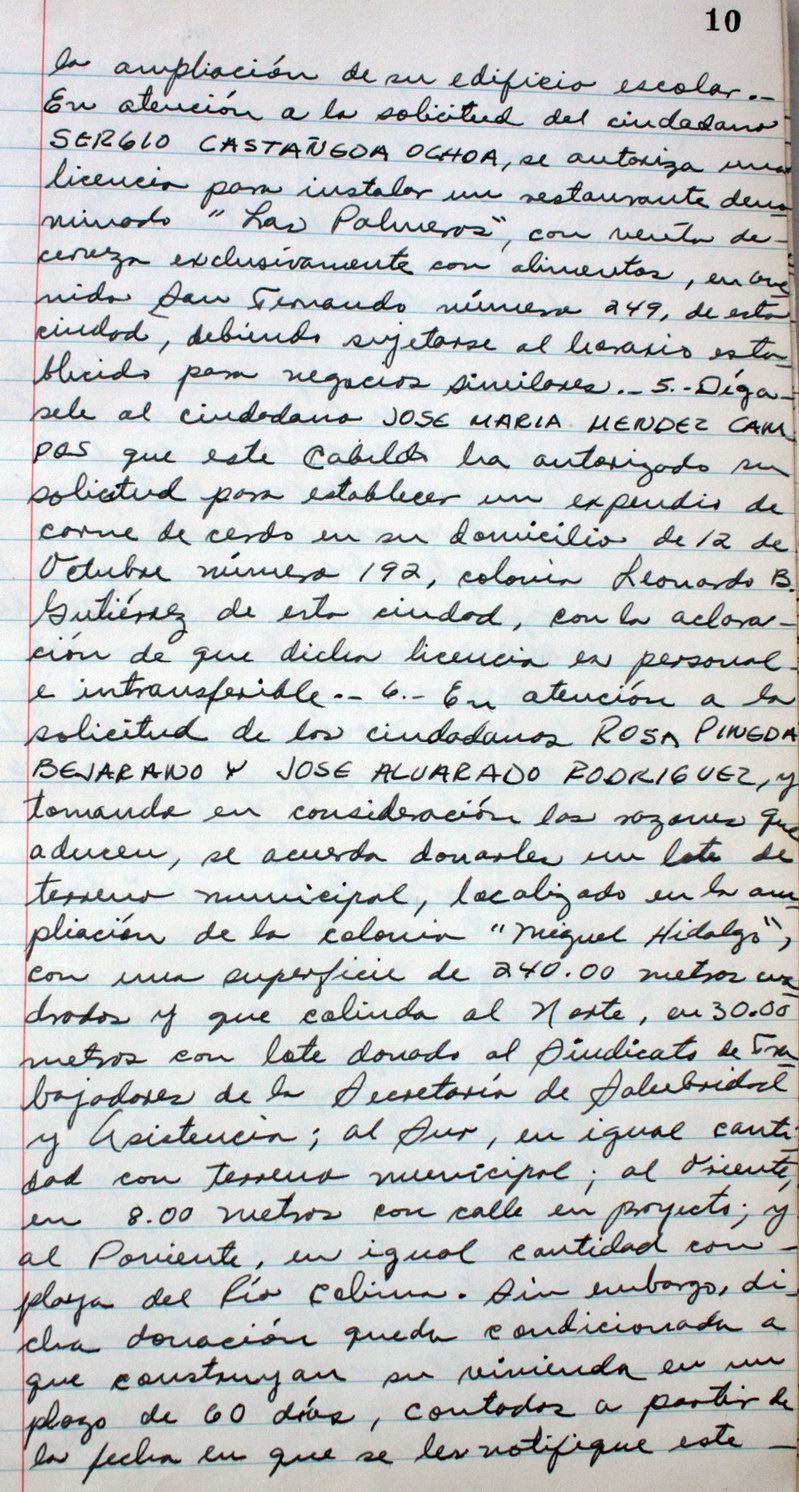 10
la ampliación de su edificio escolar.-
En atención a la solicitud del ciudadano
SERGIO CASTAÑEDA OCHOA, se autoriza una
licencia para instalar un restaurante deno
minado "Las Palmeras", con venta de-
cerveza exclusivamente con alimentos, en ave
nida San Fernando número 249, de esta
ciudad, debiendo sujetarse al horario esta
blecido para negocios similares.- 5.- Díga-
sele al ciudadano JOSE MARIA MENDEZ CAM
POS que este Cabildo ha autorizado su
solicitud para establecer un expendio de
carne de cerdo en su domicilio de 12 de
Octubre número 192, colonia Leonardo B.
Gutiérrez de esta ciudad, con la aclara-
ción de que dicha licencia es personal-
e intransferible.- 6.- En atención a la
solicitud de los ciudadanos ROSA PINEDA
BEJARANO Y JOSE ALVARADO RODRIGUEZ, y
tomando en consideración las razones que
aducen, se acuerda donarles un lote de
terreno municipal, localizado en la am
pliación de la colonia "Miguel Hidalgo",
con una superficie de 240.00 metros cua
drados y que colinda al Norte, en 30.00
metros con lote donado al Sindicato de Tra
bajadores de la Secretaría de Salubridad
y Asistencia; al Sur, en igual canti-
dad con terreno municipal; al Oriente,
en 8.00 metros con calle en proyecto; y
al Poniente, en igual cantidad con-
playa del Río Colima. Sin embargo, di-
cha donación queda condicionada a
que construyan su vivienda en un
plazo de 60 días, contados a partir de
la fecha en que se les notifique este-